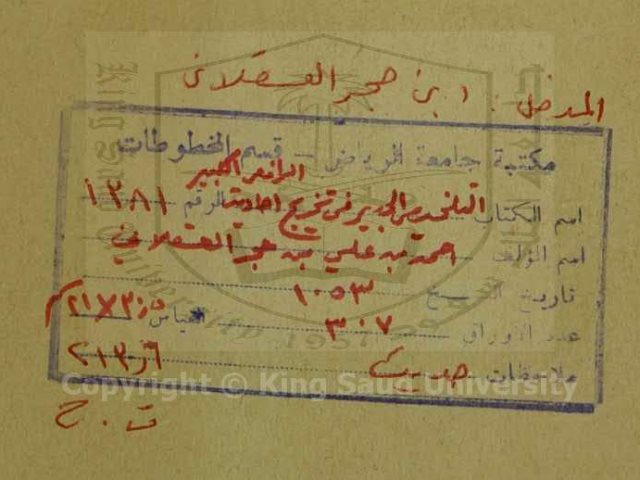 المدخل : ابن حجر العسقلاني
مكتبة جامعة الرياض - قسم المخطوطات
الرافعي الكبير
اسم الكتاب التلخيص الحبير في تخريج احاديث الرقم ١٣٨١
اسم المؤلف احمد بن علي بن حجر العسقلاني
تاريخ النسخ ١٠٥٣
عدد الاوراق ٣٠٧ القياس
ملاحظات حديث ٢١٣٫٦
ت . ح
Copyright © King Saud University